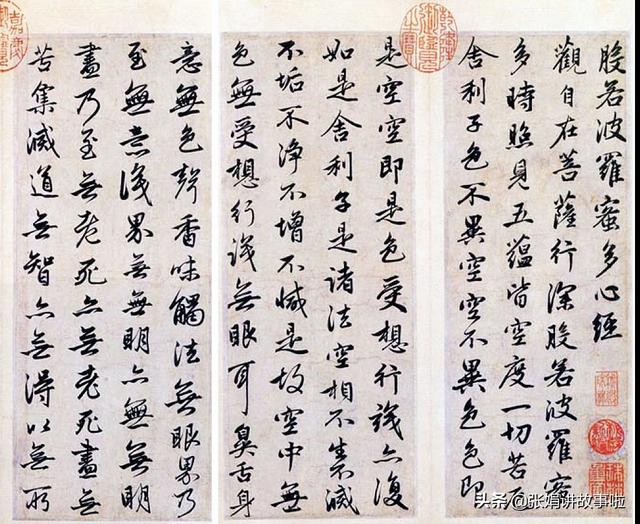 般若波羅蜜多心經
觀自在菩薩行深般若波羅蜜
多時照見五蘊皆空度一切苦厄
舍利子色不異空空不異色色即
是空空即是色受想行識亦復
如是舍利子是諸法空相不生不滅
不垢不淨不增不減是故空中無
色無受想行識無眼耳鼻舌身
意無色聲香味觸法無眼界乃
至無意識界無無明亦無無明
盡乃至無老死亦無老死盡無
苦集滅道無智亦無得以無所
头条 @张娟讲故事啦